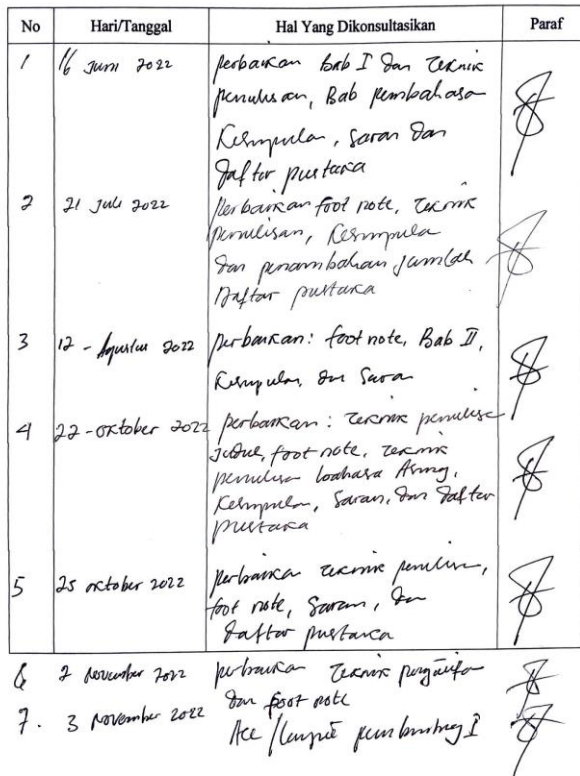 No Hari/Tanggal Hal Yang Dikonsultasikan Paraf
1 16 Juni 2022 perbaikan Bab I dan Teknik
penulisan, Bab pembahasa
Kesimpulan, Saran dan
Daftar pustaka
2 21 Juli 2022 Perbaikan foot note, Teknik
penulisan, Kesimpula
dan penambahan jumlah
Daftar pustaka
3 12 - Agustus 2022 perbaikan: foot note, Bab II,
Kesimpulan, dan Saran
4 22 - oktober 2022 perbaikan: teknik penulisa
Judul, foot note, teknik
penulisa bahasa Asing,
Kesimpulan, Saran, dan Daftar
pustaka
5 25 oktober 2022 perbaikan teknik penulisan,
foot note, Saran, dan
Daftar pustaka
6 2 November 2022 perbaikan Teknik
dan foot note
7. 3 November 2022 Acc / pembimbing I